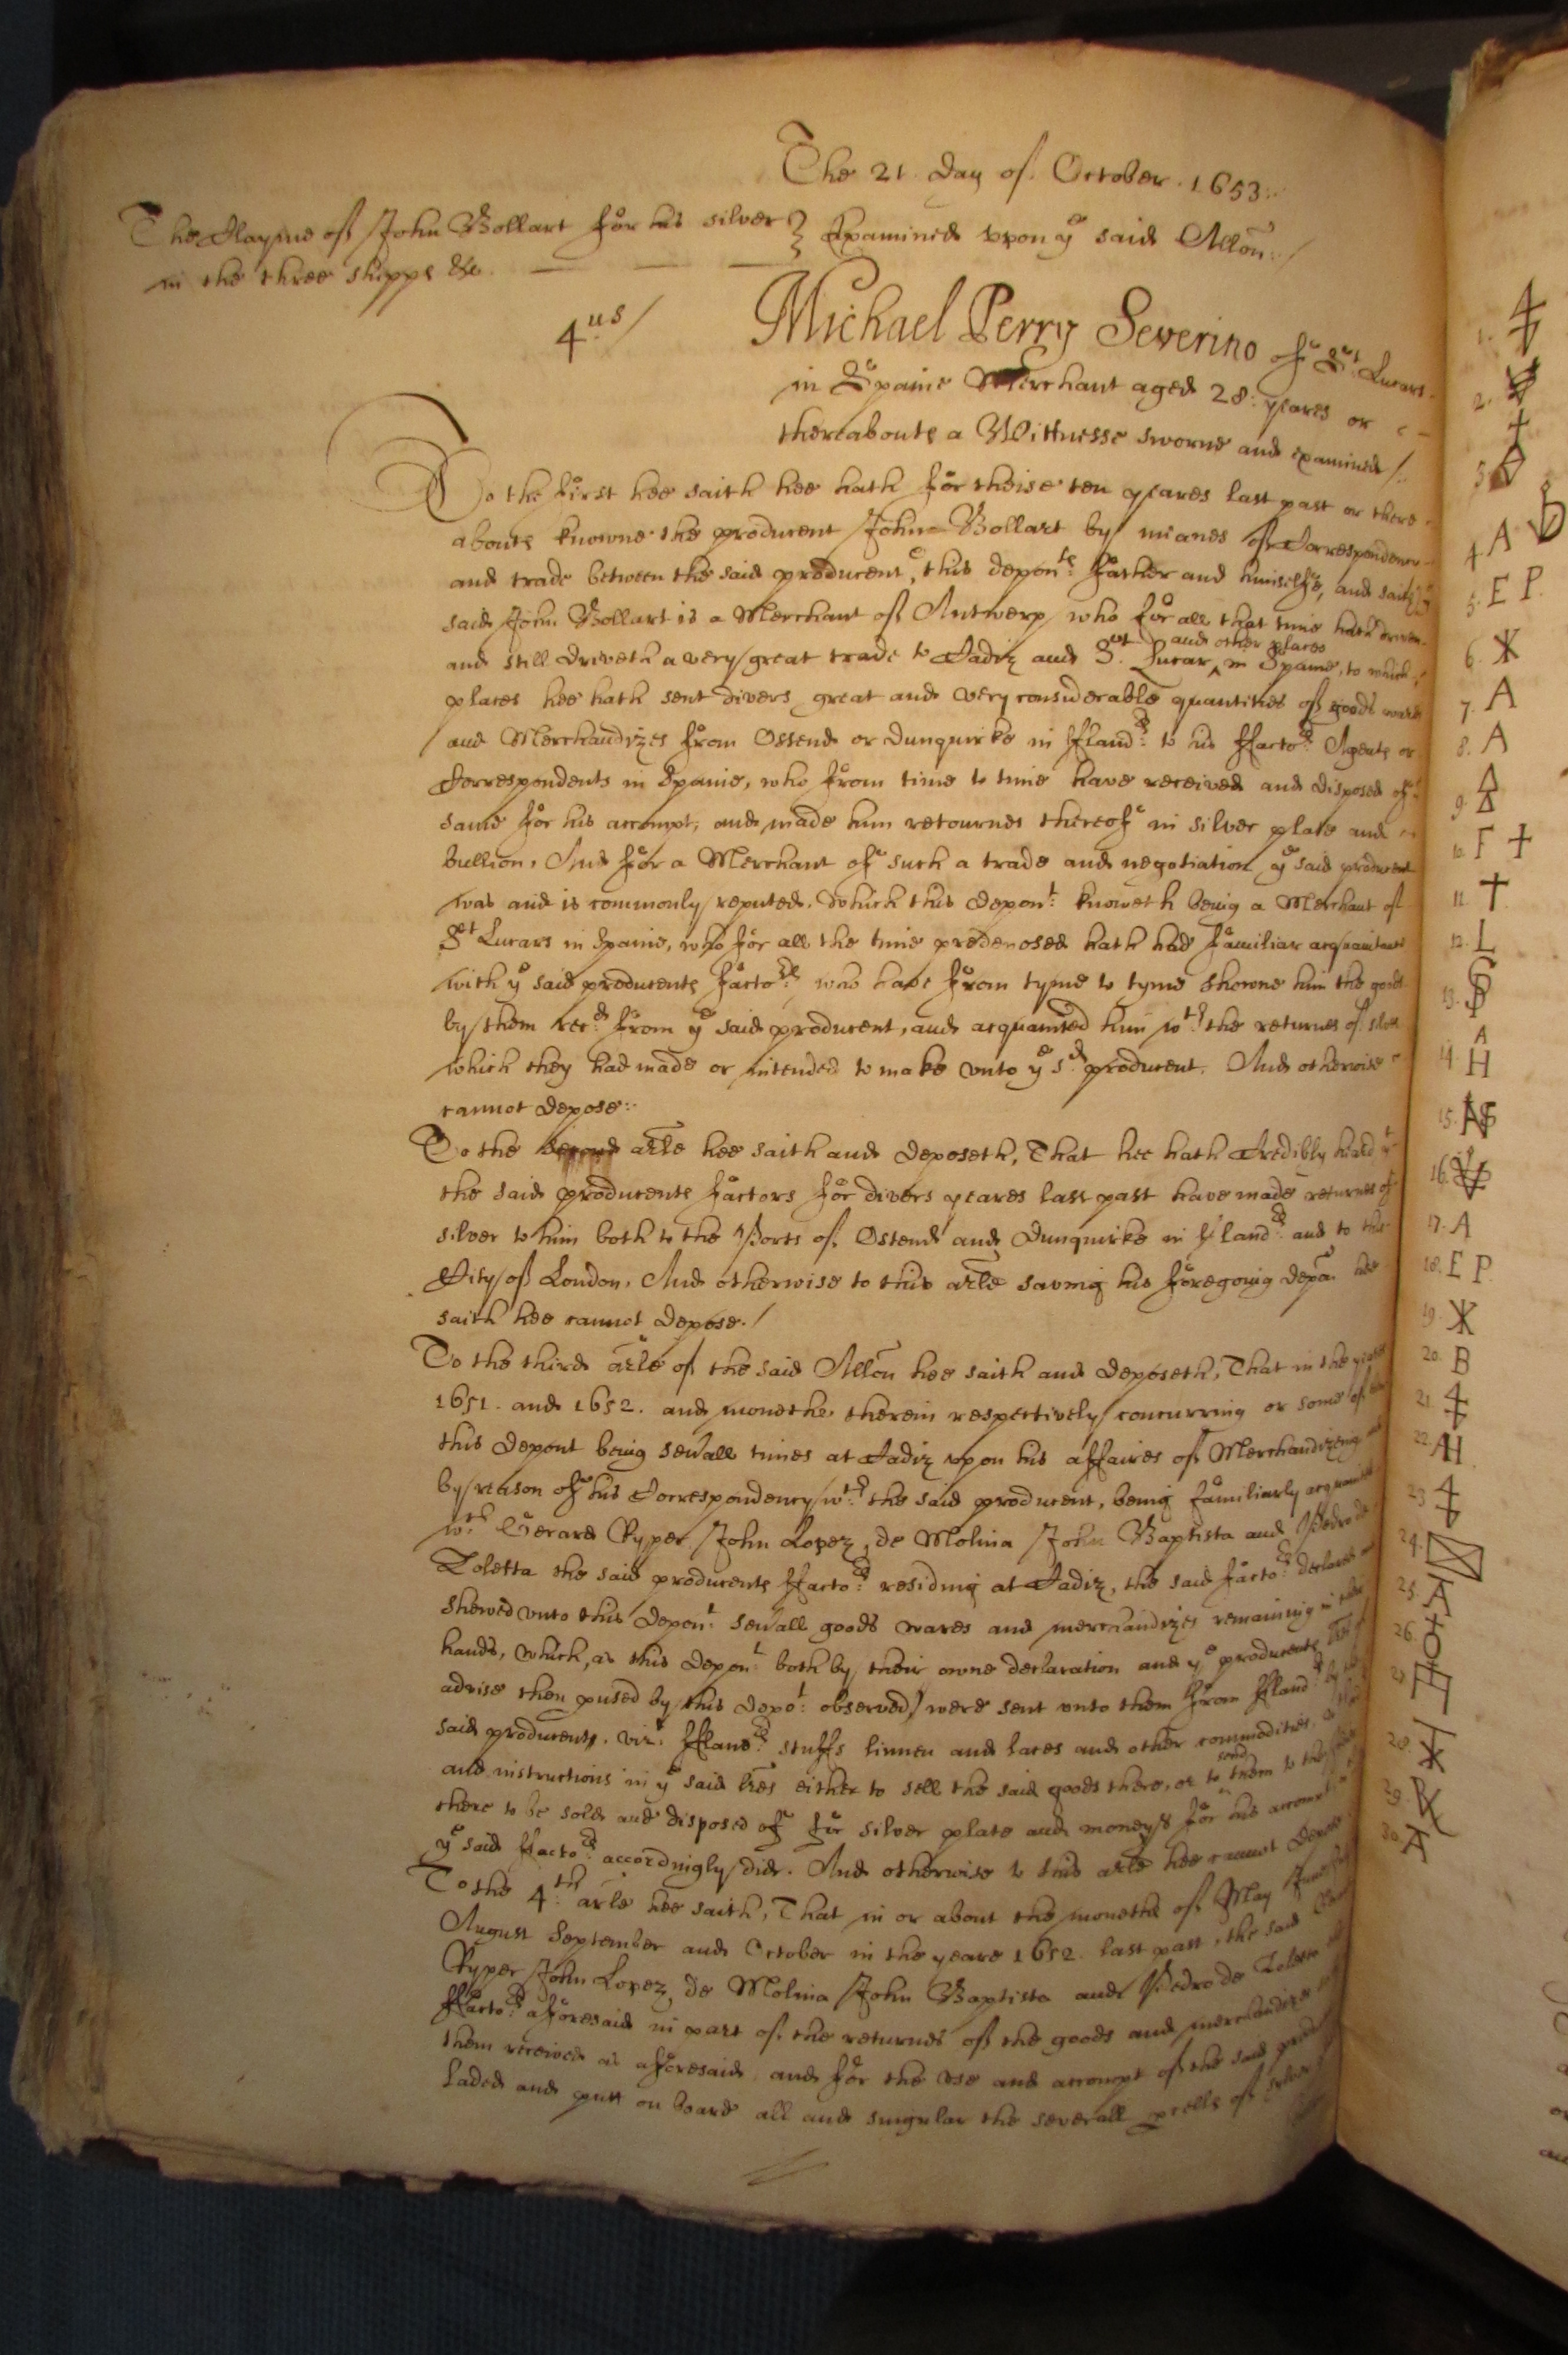 The 21. day of October. 1653:.
The Clayme of John Bollart for his silver } Examined upon ye said Allon:./
in the three shipps &c.
4.us/
Michael Perry Severino of St. Lucars
in Spaine Merchant aged 28: yeares or
thereabouts a Wittnesse sworne and examined/.
To the first hee saith hee hath for theise ten yeares last past or there
abouts knowne the producent John Bollart by meanes of Correspondence
and trade betweene the said producent, this depon.ts father and himselfe, and saith ye
said John Bollart is a Merchant of Antwerp who for all that time hath driven
and still driveth a very great trade to Cadiz and St. Lucar ^and other places in Spaine, to which
places hee hath sent divers great and very considerable quantities of goods wares
and Merchandizes from Ostend or dunquirke in ffland.rs to his ffacto.rs Agents or
Correspondents in Spaine, who from time to time have received and disposed of ye
same for his accompt, and made him retournes thereof in silver plate and
bullion, And for a Merchant of such a trade and negotiation ye said producent
was and is commonly reputed. Which this depon.t knoweth being a Merchant of
St Lucars in Spaine, who for all the time predeposed hath had familiar acquaintance
with ye said producents facto.rs who have from tyme to tyme shewne him the goods
by them rec.d from ye said producent, and acquainted him w.th the returnes of silver
which they had made or intended to make unto ye s.d producent. And otherwise
cannot depose:.
To the second arle hee saith and deposeth, That hee hath Credibly heard yt
the said producents factors for divers yeares last past have made returnes of
silver to him both to the Ports of Ostend and Dunquirke in ffland.rs and to this
City of London. And otherwise to this arle saving his foregoing depon. hee
saith hee cannot depose./
To the third arle of the said Allon hee saith and deposeth, That in the yeares
1651. and 1652. and moneths therein respectively concurring or some of them
this depont being sevall times at Cadiz upon his affaires of Merchandizing and
by reason of his Correspondency w.th the said producent, being familiarly acquainted
w.th Gerard Ryper John Lopez de Molina John Baptista and Pedro de
Toletta the said producents ffacto.rs residing at Cadiz, the said facto.rs declared and
shewed unto this depon.t sevall goods wares and merchandizes remaining in their
hands, which, as this depon.t both by their owne declaration and ye producents
advise then pused by this depo.t observed, were sent unto them from ffland.rs by the
said producent, viz.t ffland.rs stuffs linnen and laces and other commodities,
and instructions in ye said lres either to sell the said goods there, or to ^send them to the
there to be sold and disposed of for silver plate and moneys for his accompt
ye said ffacto.rs accordingly did. And otherwise to this arle hee cannot depose
To the 4.th arle hee saith, That in or about the moneths of May June
August September and October in the yeare 1652. last past, the said
Ryper John Lopez de Molina John Baptista and Pedro de Toletta
ffacto.rs aforesaid in part of the returnes of the goods and merchandizes
them received as aforesaid and for the use and accompt of the said
laded and putt on board all and singular the severall pcells of silver
1.
2.
3.
4. A
5. E P.
6.
7. A
8. A
9.
10. F +
11. +
12. L
13.
14. A H
15. AS
16.
17. A
18. E P
19.
20. B
21.
22. AH
23
24.
25. A
26.
27
28.
29.
30. A